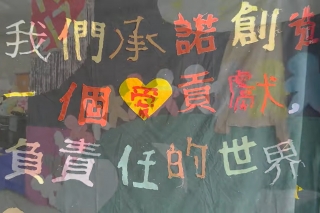 我們承諾創造
一個愛貢獻、
負責任的世界